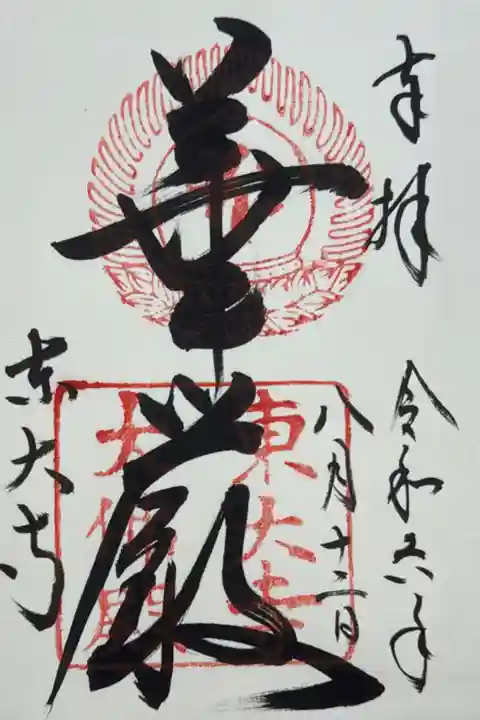 奉拝
令和六年
八月十二日
華厳
東大寺
東大寺
大佛殿